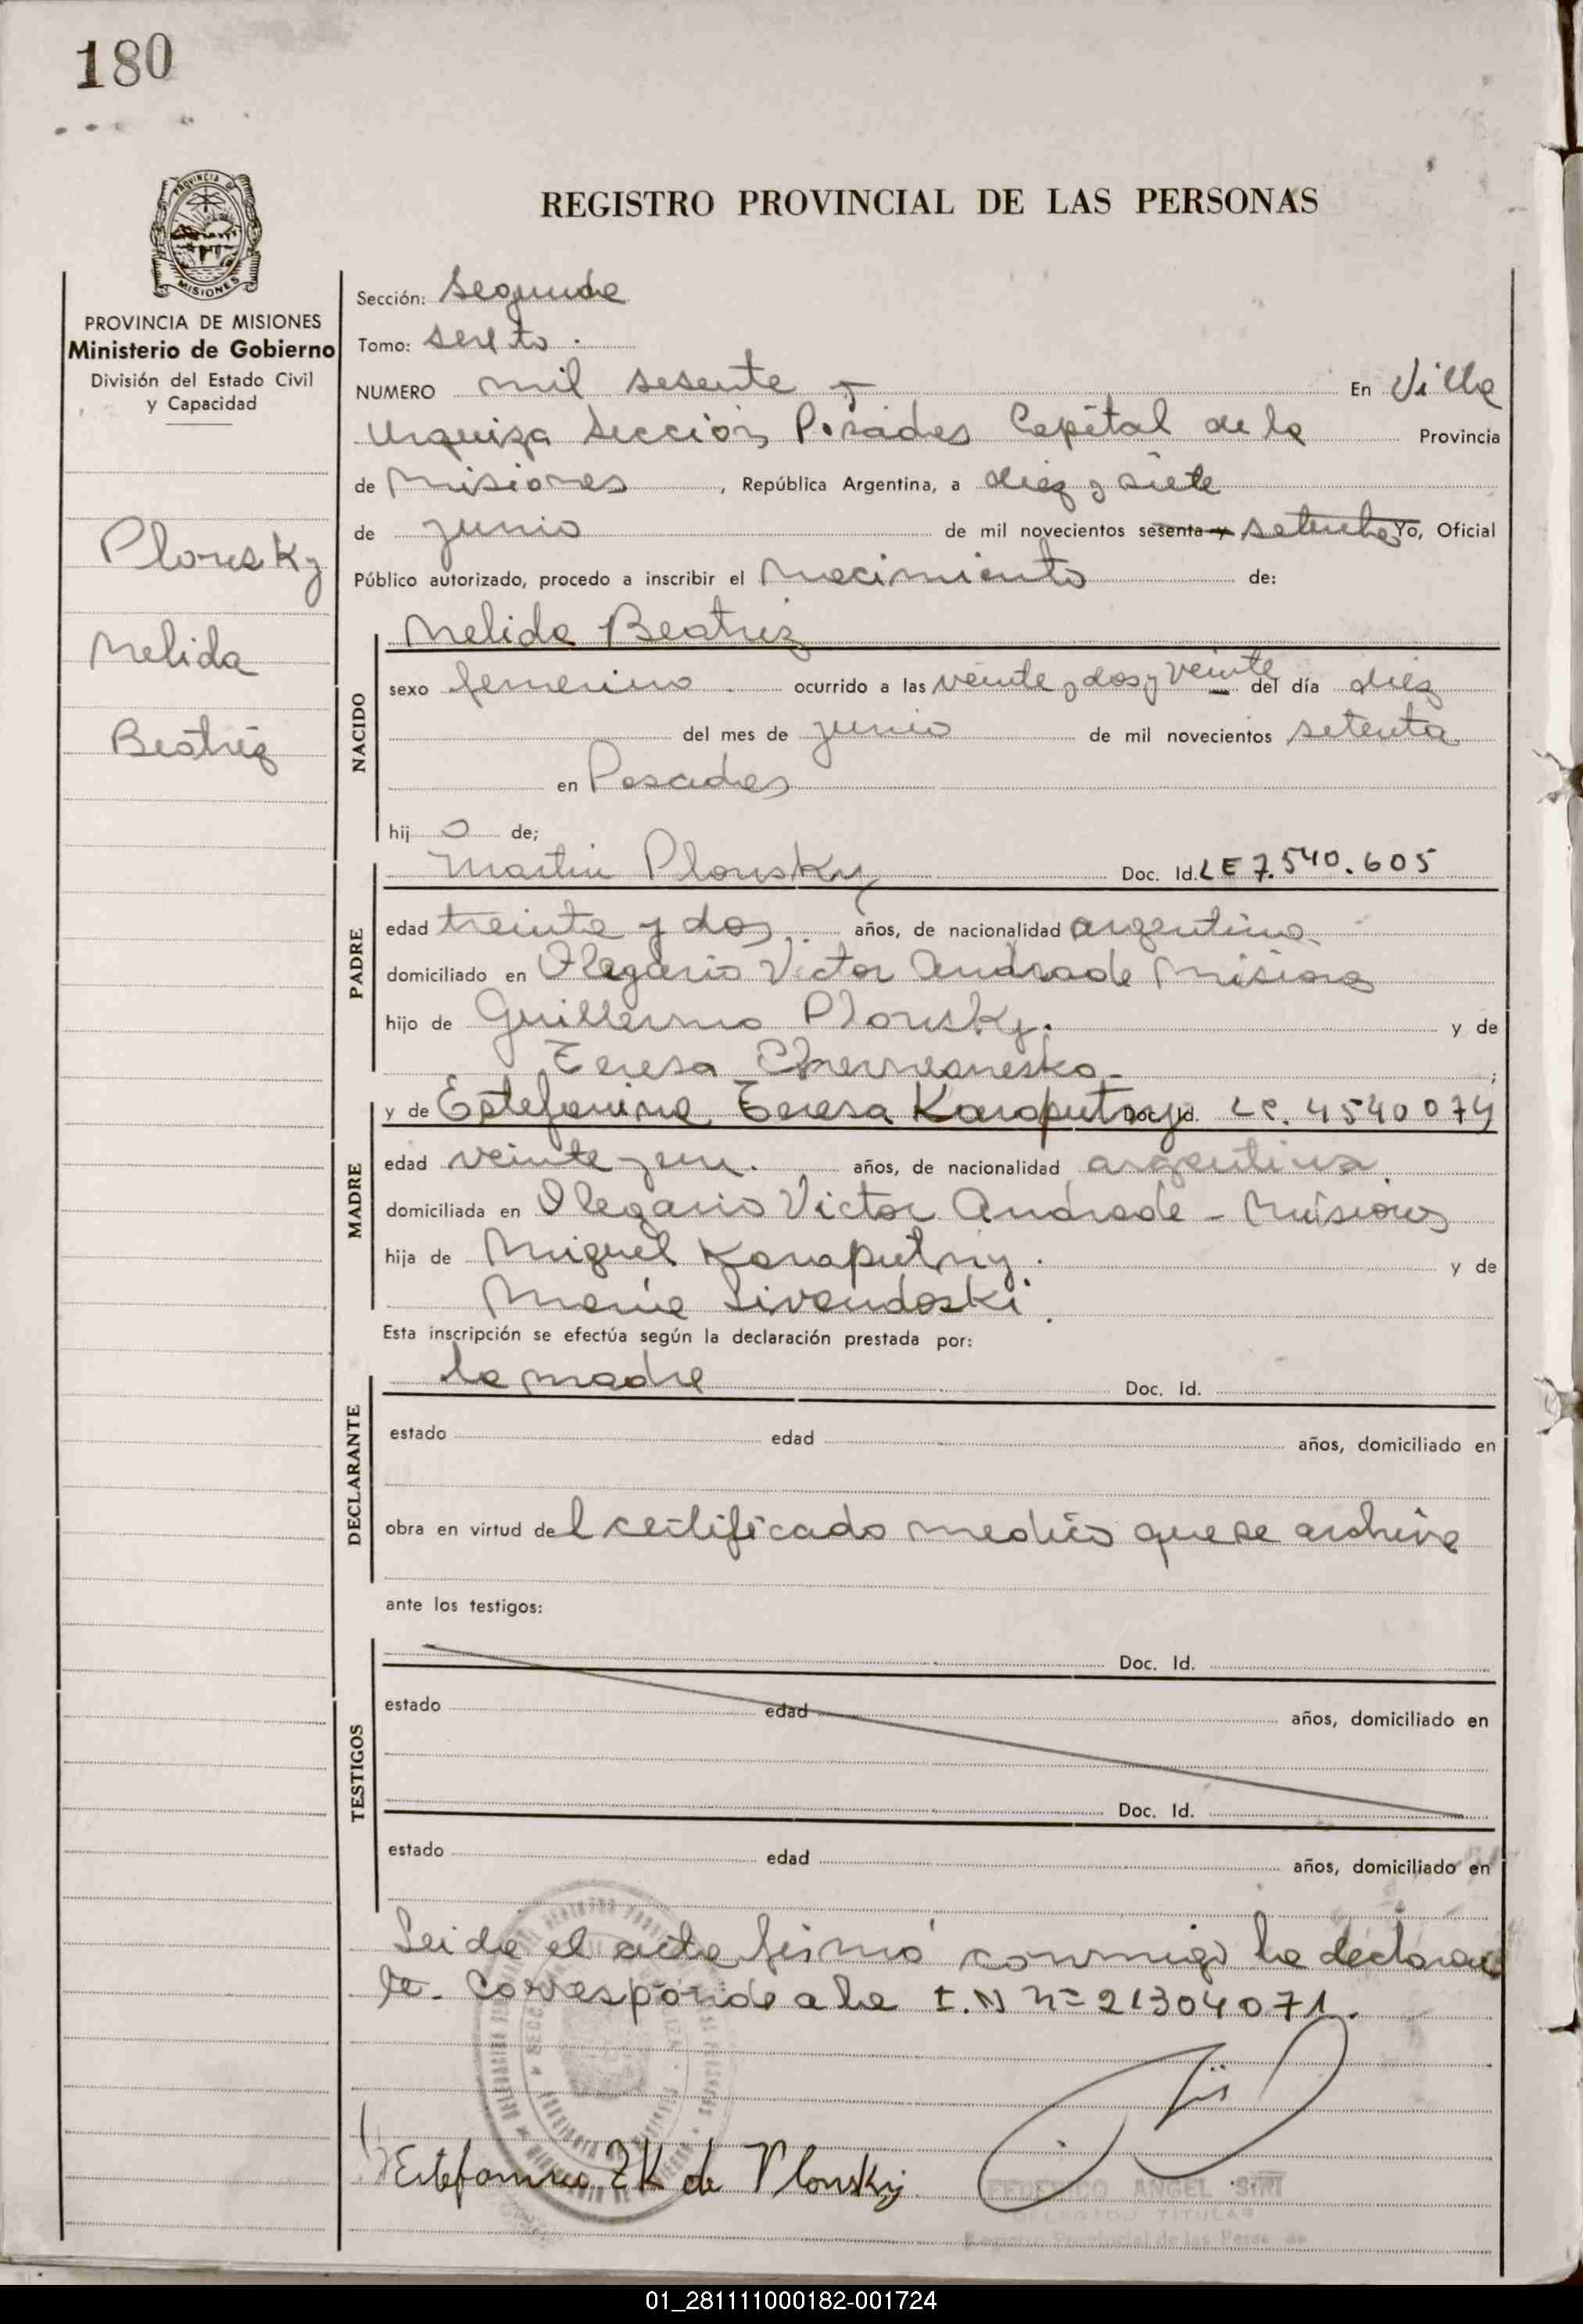 180
PROVINCIA DE MISIONES
REGISTRO PROVINCIAL DE LAS PERSONAS
PROVINCIA DE MISIONES
Ministerio de Gobierno
División del Estado Civil
y Capacidad
Plonsky
Nelida
Beatriz
Sección: Segunda
Tomo: sexto.
NUMERO mil sesenta En Villa
Urquiza Sección Posadas Capital de la Provincia
de Misiones, República Argentina, a diez y siete
de junio de mil novecientos sesenta y setenta Yo, Oficial
Público autorizado, procedo a inscribir el Nacimiento de:
NACIDO
Nelida Beatriz
sexo femenino. ocurrido a las veinte y dos y veinte del día diez
del mes de junio de mil novecientos setenta
en Posadas
hij a de;
PADRE
Martin Plonsky Doc. Id. LE 7.540.605
edad treinta y dos años, de nacionalidad argentina
domiciliado en Olegario Victor Andrade Misiones
hijo de Guillermo Plonsky. y de
Teresa
MADRE
y de Estefanina Teresa Karaputnyj Doc. Id. LC. 4540074
edad veinte y un. años, de nacionalidad argentina
domiciliada en Olegario Victor Andrade - Misiones
hija de Miguel Karaputniy. y de
Maria Sivendoski.
Esta inscripción se efectúa según la declaración prestada por:
DECLARANTE
la madre Doc. Id.
estado edad años, domiciliado en
obra en virtud del certificado medico que se archiva
ante los testigos:
TESTIGOS
Doc. Id.
estado edad años, domiciliado en
Doc. Id.
estado edad años, domiciliado en
Leida el acta firmó conmigo la declaran
te. Corresponde a la I.N nº 21304071.
Estefanina T K de Plonsky
FEDERICO ANGEL SIRI
DELEGADO TITULAR
Registro Provincial de las Pers
01_281111000182-001724